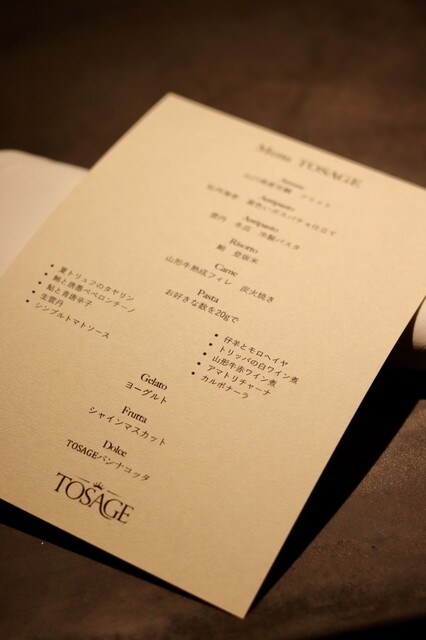 Menu TOSAGE
Antipasto
Antipasto
雲丹 毛蟹 冷製パスタ
Risotto
鮑 意飯米
Carne
山形牛熟成フィレ 炭火焼き
Pasta
お好きな数を20gで
• 夏トリュフのタヤリン
• 鮑と唐墨ペペロンチーノ
• 鮎と青唐辛子
• 生雲丹
• シンプルトマトソース
• 仔羊とモロヘイヤ
• トリッパの白ワイン煮
• 山形牛赤ワイン煮
• アマトリチャーナ
• カルボナーラ
Gelato
ヨーグルト
Frutta
シャインマスカット
Dolce
TOSAGEパンナコッタ
TOSAGE